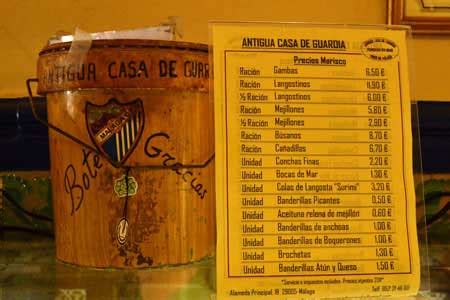 ANTIGUA CASA DE GUARDIA
Precios Marisco
Ración Gambas 6,50 €
Ración Langostinos 11,90 €
½ Ración Langostinos 6,00 €
Ración Mejillones 5,80 €
½ Ración Mejillones 2,90 €
Ración Búsanos 8,70 €
Ración Cañadillas 6,70 €
Unidad Conchas Finas 2,20 €
Unidad Bocas de Mar 1,30 €
Unidad Colas de Langosta "Surimi" 3,20 €
Unidad Banderillas Picantes 0,50 €
Unidad Aceituna relena de mejillón 0,60 €
Unidad Banderillas de anchoas 1,00 €
Unidad Banderillas de Boquerones 1,00 €
Unidad Brochetas 1,30 €
Unidad Banderillas Atún y Queso 1,50 €
Alameda Principal, 18 29005-Málaga
ANTIGUA CASA DE GUAR
MALAGA
Bote
Gracias